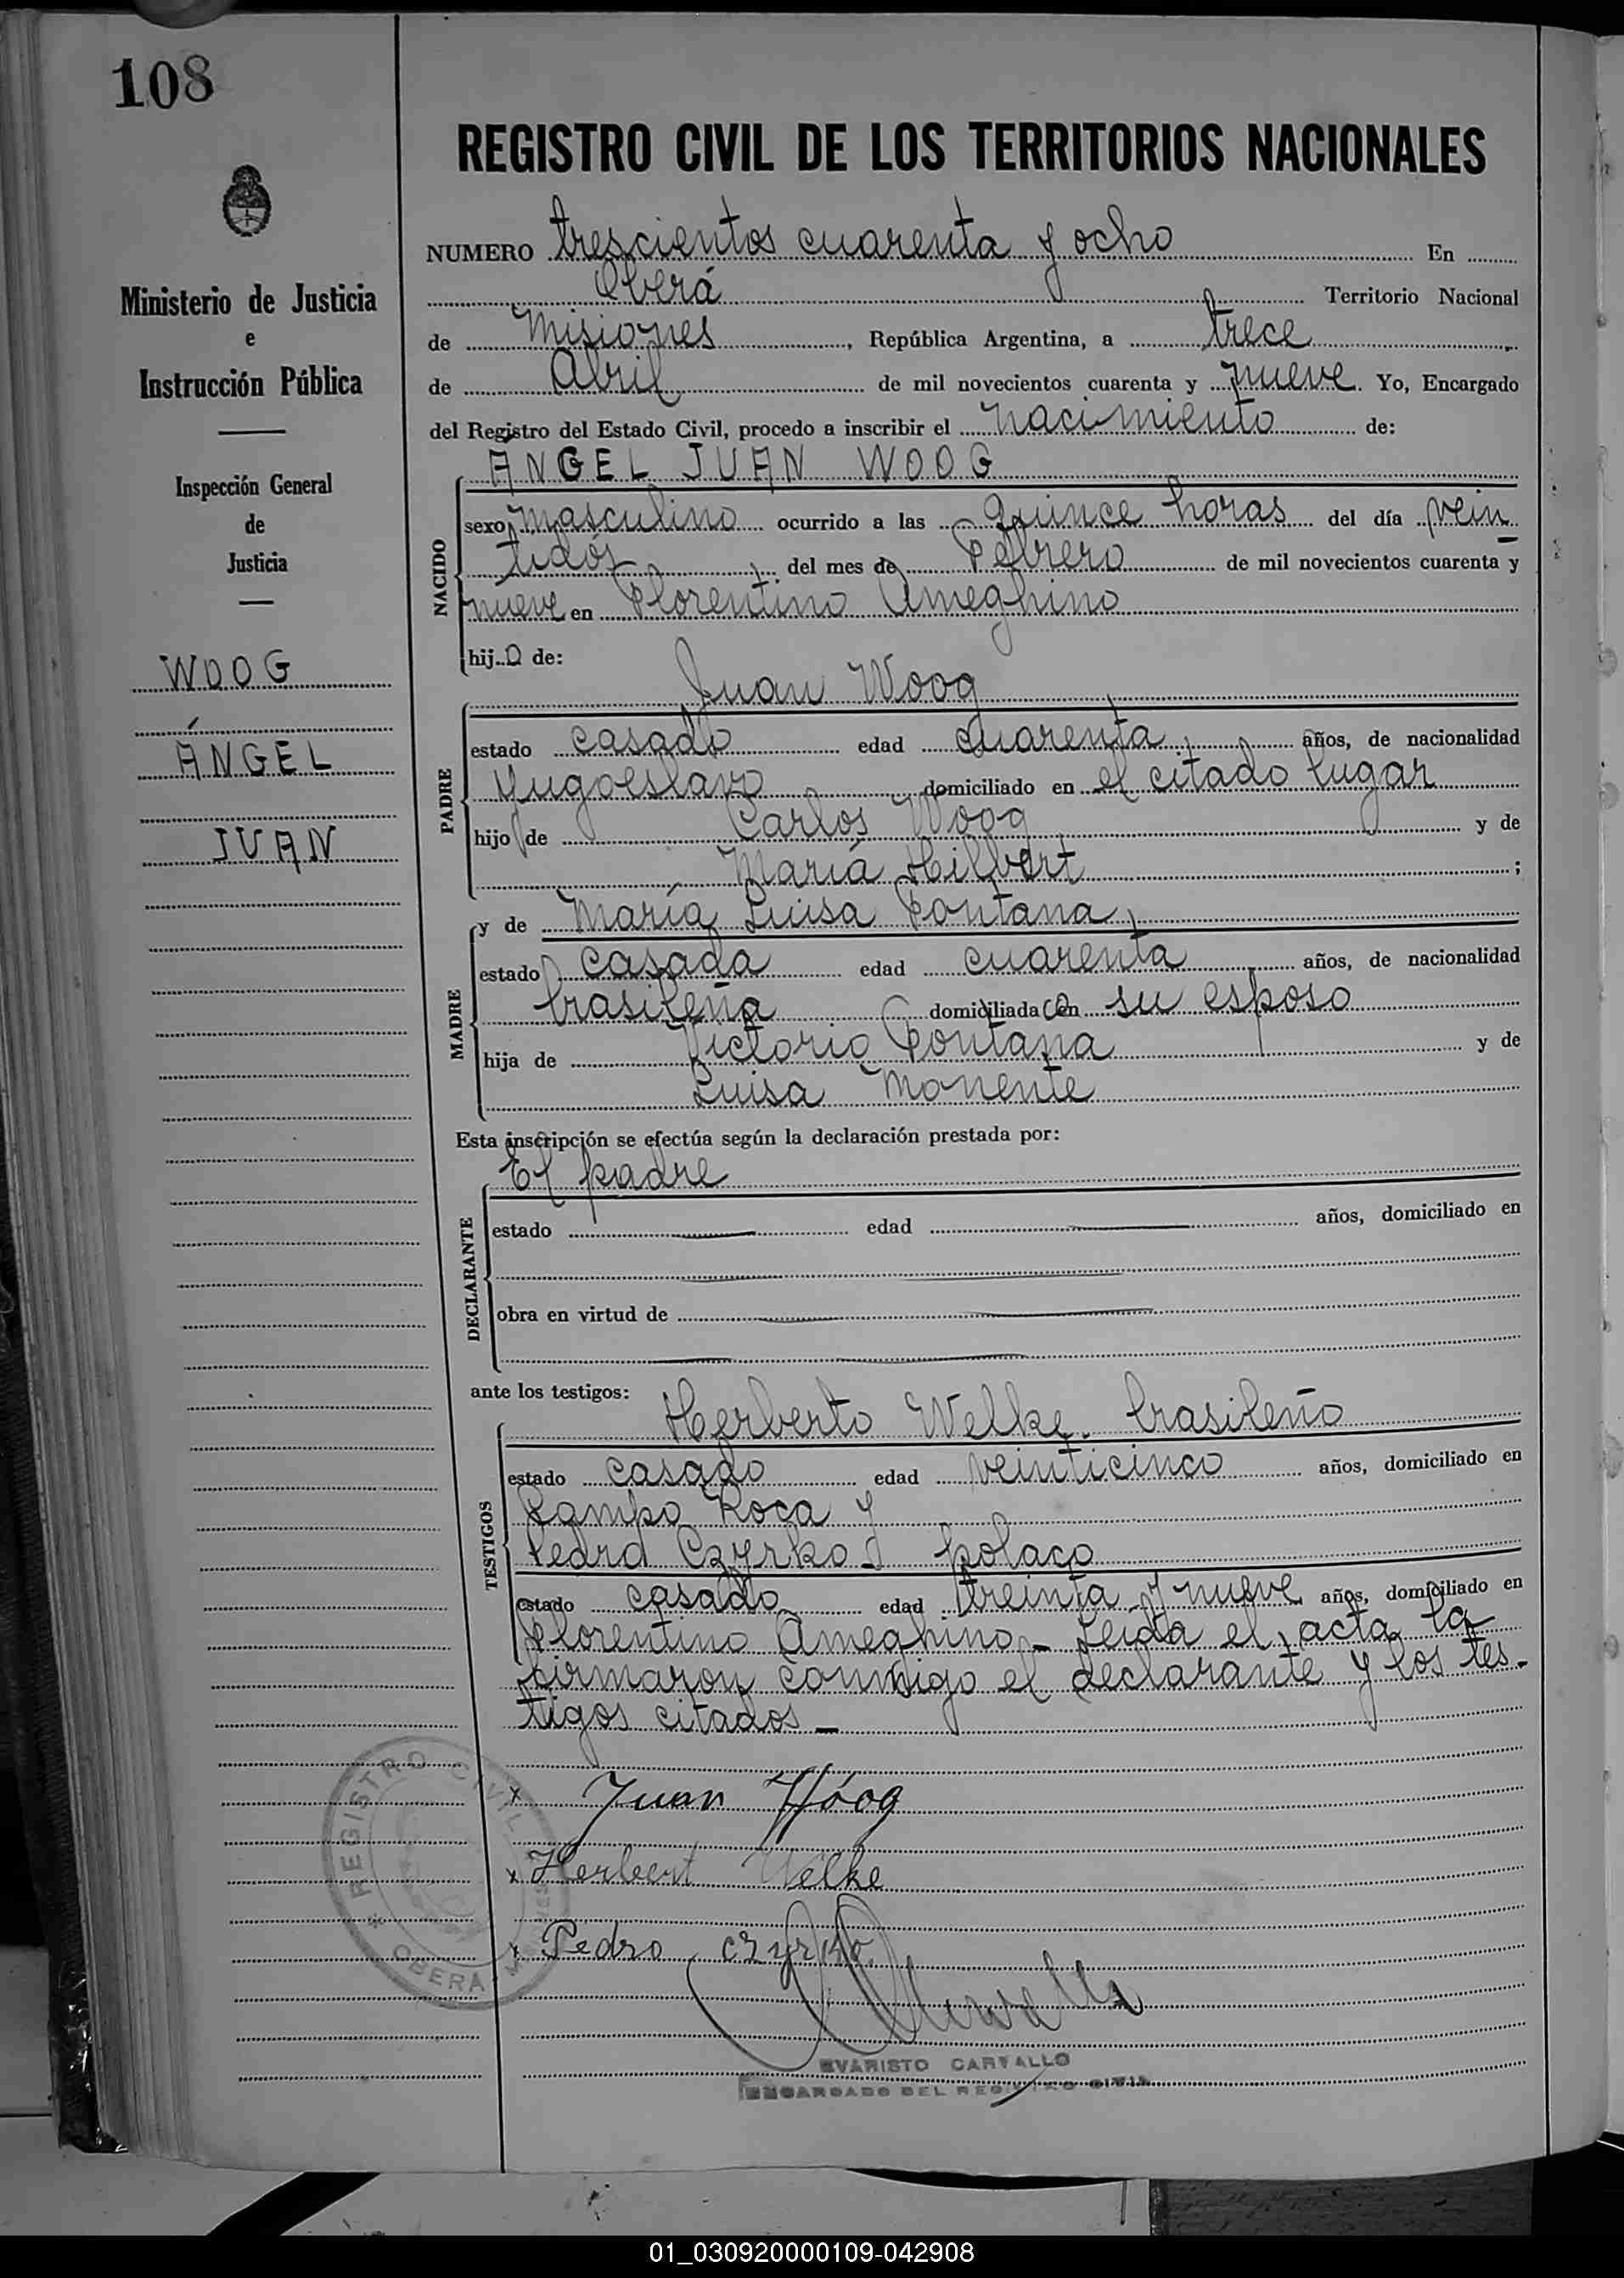 108
REGISTRO CIVIL DE LOS TERRITORIOS NACIONALES
NUMERO trescientos cuarenta y ocho En
Oberá Territorio Nacional
de Misiones, República Argentina, a trece
de Abril de mil novecientos cuarenta y nueve. Yo, Encargado
del Registro del Estado Civil, procedo a inscribir el nacimiento de:
Ministerio de Justicia
e
Instrucción Pública
Inspección General
de
Justicia
WOOG
ÁNGEL
JUAN
ÁNGEL JUAN WOOG
NACIDO
sexo masculino ocurrido a las quince horas del día vein
tidós del mes de Febrero de mil novecientos cuarenta y
nueve en Florentino Ameghino
hij o de:
Juan Woog
PADRE
estado casado edad cuarenta años, de nacionalidad
Yugoeslavo domiciliado en el citado lugar
hijo de Carlos Woog y de
María Hilbert ;
MADRE
y de María Luisa Fontana
estado casada edad cuarenta años, de nacionalidad
brasileña domiciliada con su esposo
hija de Victorio Fontana y de
Luisa Monente
Esta inscripción se efectúa según la declaración prestada por:
El padre
DECLARANTE
estado edad años, domiciliado en
obra en virtud de
ante los testigos:
Herberto Welke. brasileño
TESTIGOS
estado casado edad veinticinco años, domiciliado en
Campo Roca y
Pedro Czyrko - polaco
estado casado edad treinta y nueve años, domiciliado en
Florentino Ameghino - Leída el acta la
firmaron conmigo el declarante y los tes-
tigos citados -
x Juan Wóog
x Herbert Welke
x Pedro czyrko
REGISTRO CIVIL
OBERA
EVARISTO CARVALLO
ENCARGADO DEL REGISTRO CIVIL
01_030920000109-042908